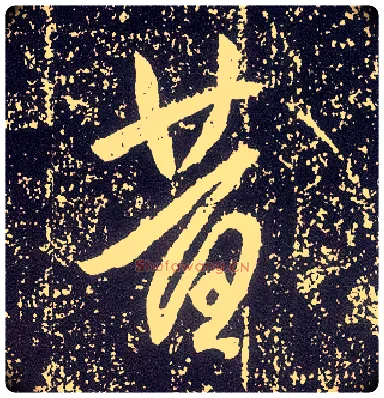 昔
Shufawang.CN